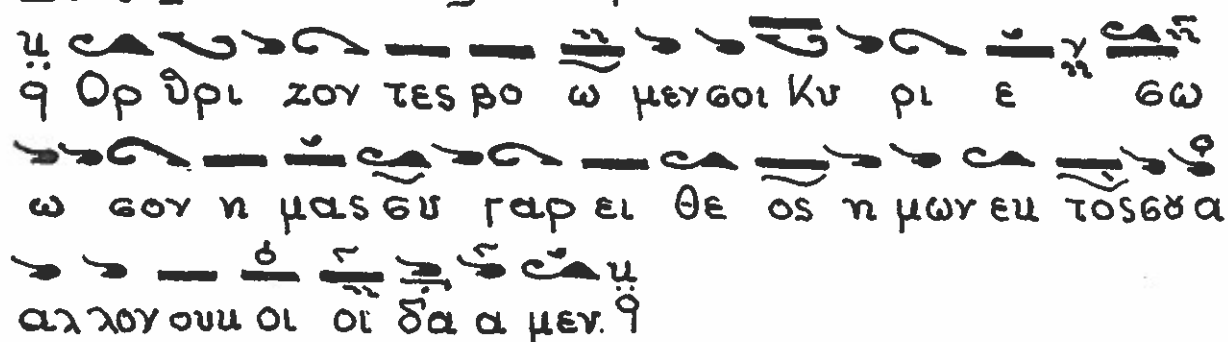 ϥ Ορ θρι ζον τες βο ω μεν σοι Κυ ρι ε σω
ω σον η μας συ γαρ ει θε ος η μων εκ τος σου α
αλ λον ουκ οι οι δα α μεν. ϥ